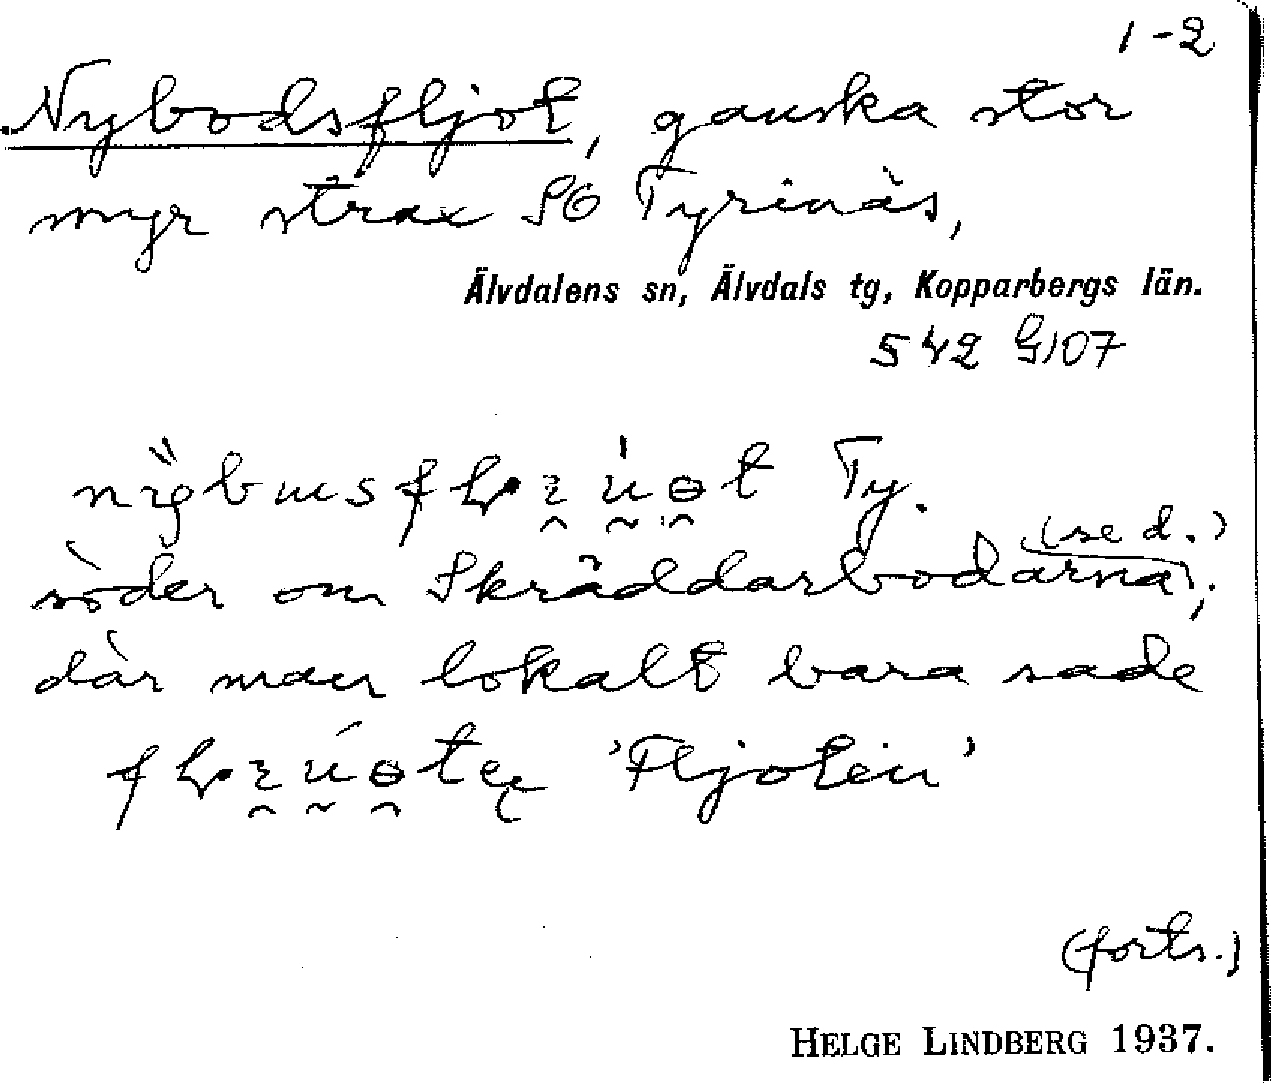 1-2
Nybodsfljot, ganska stor
myr strax SÖ Tyrinäs,
Älvdalens sn, Älvdals tg, Kopparbergs län.
542 G107
Ty.
(se d.)
söder om Skräddarbodarna,
där man lokalt bara sade
'Fljoten'
(forts.)
HELGE LINDBERG 1937.